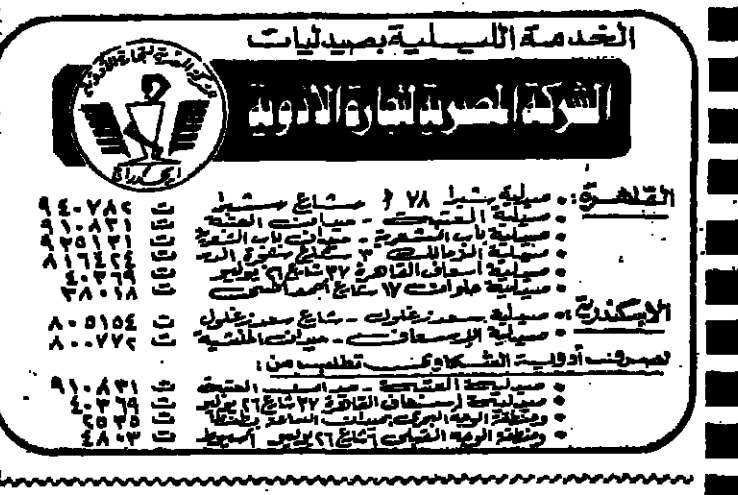 الخدمة الليلية بصيدليات
الشركة المصرية لتجارة الأدوية
القاهرة: • صيدلية شبرا ٧٨ شارع شبرا ت ٩٤٠٧٨٢
• صيدلية العتبة - ميدان العتبة ت ٩١٠٨٣١
• صيدلية باب الشعرية - ميدان باب الشعرية ت ٩٣٥١٣١
• صيدلية الزمالك ٣ شارع شجرة الدر ت ٨١٦٤٢٤
• صيدلية اسعاف القاهرة ٣٧ شارع ٢٦ يوليو ت ٤٠٣٦٩
• صيدلية حلوان ١٧ شارع احمد ت ٣٨٠١٨
الاسكندرية: • صيدلية سعد زغلول - شارع سعد زغلول ت ٨٠٥١٥٤
• صيدلية الإسعاف - ميدان المنشية ت ٨٠٠٧٧٢
لصرف أدوية تطلب من:
• صيدلية العتبة - ميدان العتبة ت ٩١٠٨٣١
• صيدلية إسعاف القاهرة ٣٧ شارع ٢٦ يوليو ت ٤٠٣٦٩
• ومنطقة الوجه البحرى ميدان الساعة بطنطا ت ٢٥٣٥
• ومنطقة الوجه القبلى ٦ شارع ٢٦ يوليو أسيوط ت ٤٨٠٣